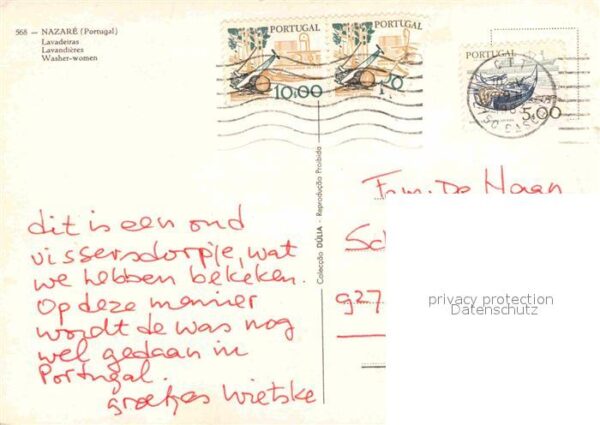 568 — NAZARÉ (Portugal)
Lavadeiras
Lavandières
Washer-women
PORTUGAL
10$00
PORTUGAL
PORTUGAL
5$00
CTT
2750 CASCAIS
Colecção DÚLIA - Reprodução Proibida
dit is een oud
vissersdorpje, wat
we hebben bekeken.
Op deze manier
wordt de was nog
wel gedaan in
Portugal.
groetjes Wietske
Fam. De Haan
927
privacy protection
Datenschutz